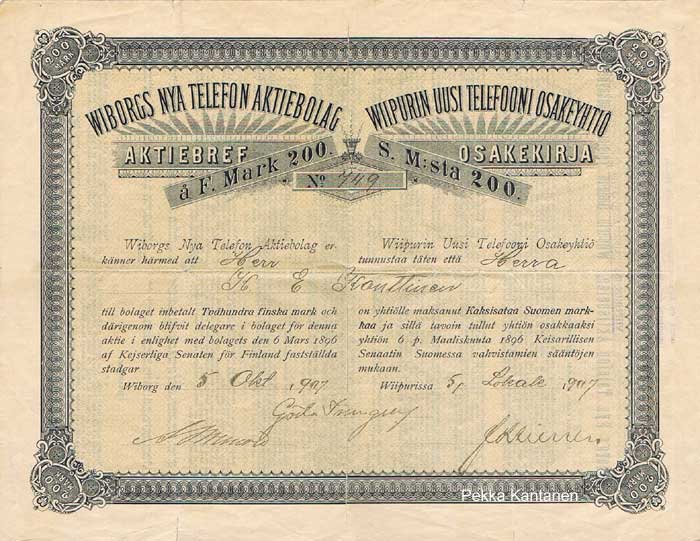 200 MARK
200 MARK
WIBORGS NYA TELEFON AKTIEBOLAG
AKTIEBREF
å F. Mark 200.
WIIPURIN UUSI TELEFOONI OSAKEYHTIÖ
OSAKEKIRJA
S. M:sta 200.
No 749
Wiborgs Nya Telefon Aktiebolag er-
känner härmed att Herr
Wiipurin Uusi Telefooni Osakeyhtiö
tunnustaa täten että Herra
K E Konttinen
till bolaget inbetalt Tvåhundra finska mark och
därigenom blifvit delegare i bolaget för denna
aktie i enlighet med bolagets den 6 Mars 1896
af Kejserliga Senaten för Finland fastställda
stadgar
Wiborg den 5 Okt. 1907
on yhtiölle maksanut Kaksisataa Suomen mark-
kaa ja sillä tavoin tullut yhtiön osakkaaksi
yhtiön 6 p. Maaliskuuta 1896 Keisarillisen
Senaatin Suomessa vahvistamien sääntöjen
mukaan.
Wiipurissa 5 Lokak. 1907
Pekka Kantanen
200 MARK
200 MARK